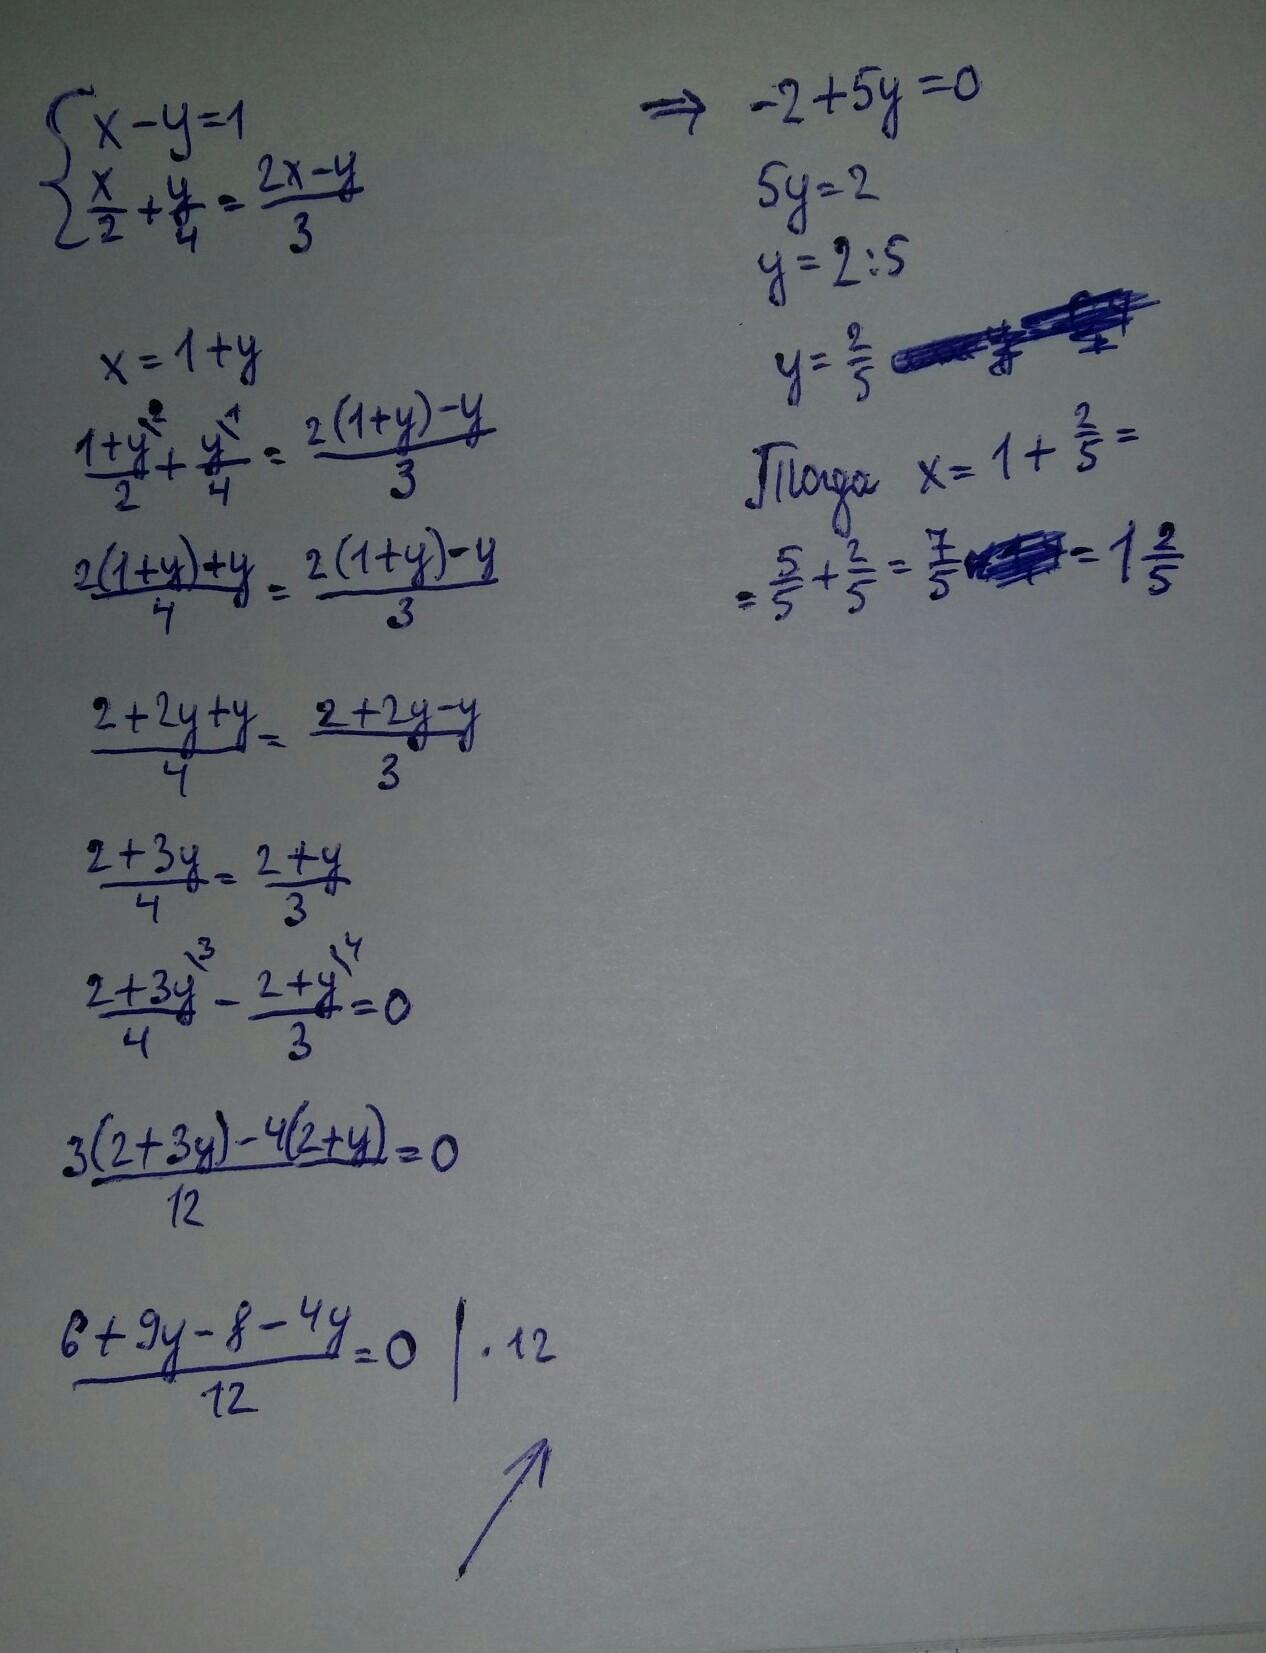 x-y=1
x/2+y/4=(2x-y)/3
x=1+y
(1+y\2)/2+(y\1)/4=(2(1+y)-y)/3
(2(1+y)+y)/4=(2(1+y)-y)/3
(2+2y+y)/4=(2+2y-y)/3
(2+3y)/4=(2+y)/3
(2+3y\3)/4-(2+y\4)/3=0
(3(2+3y)-4(2+y))/12=0
(6+9y-8-4y)/12=0 | ·12
⇒ -2+5y=0
5y=2
y=2:5
y=2/5
Тогда x=1+2/5=
=5/5+2/5=7/5=1 2/5